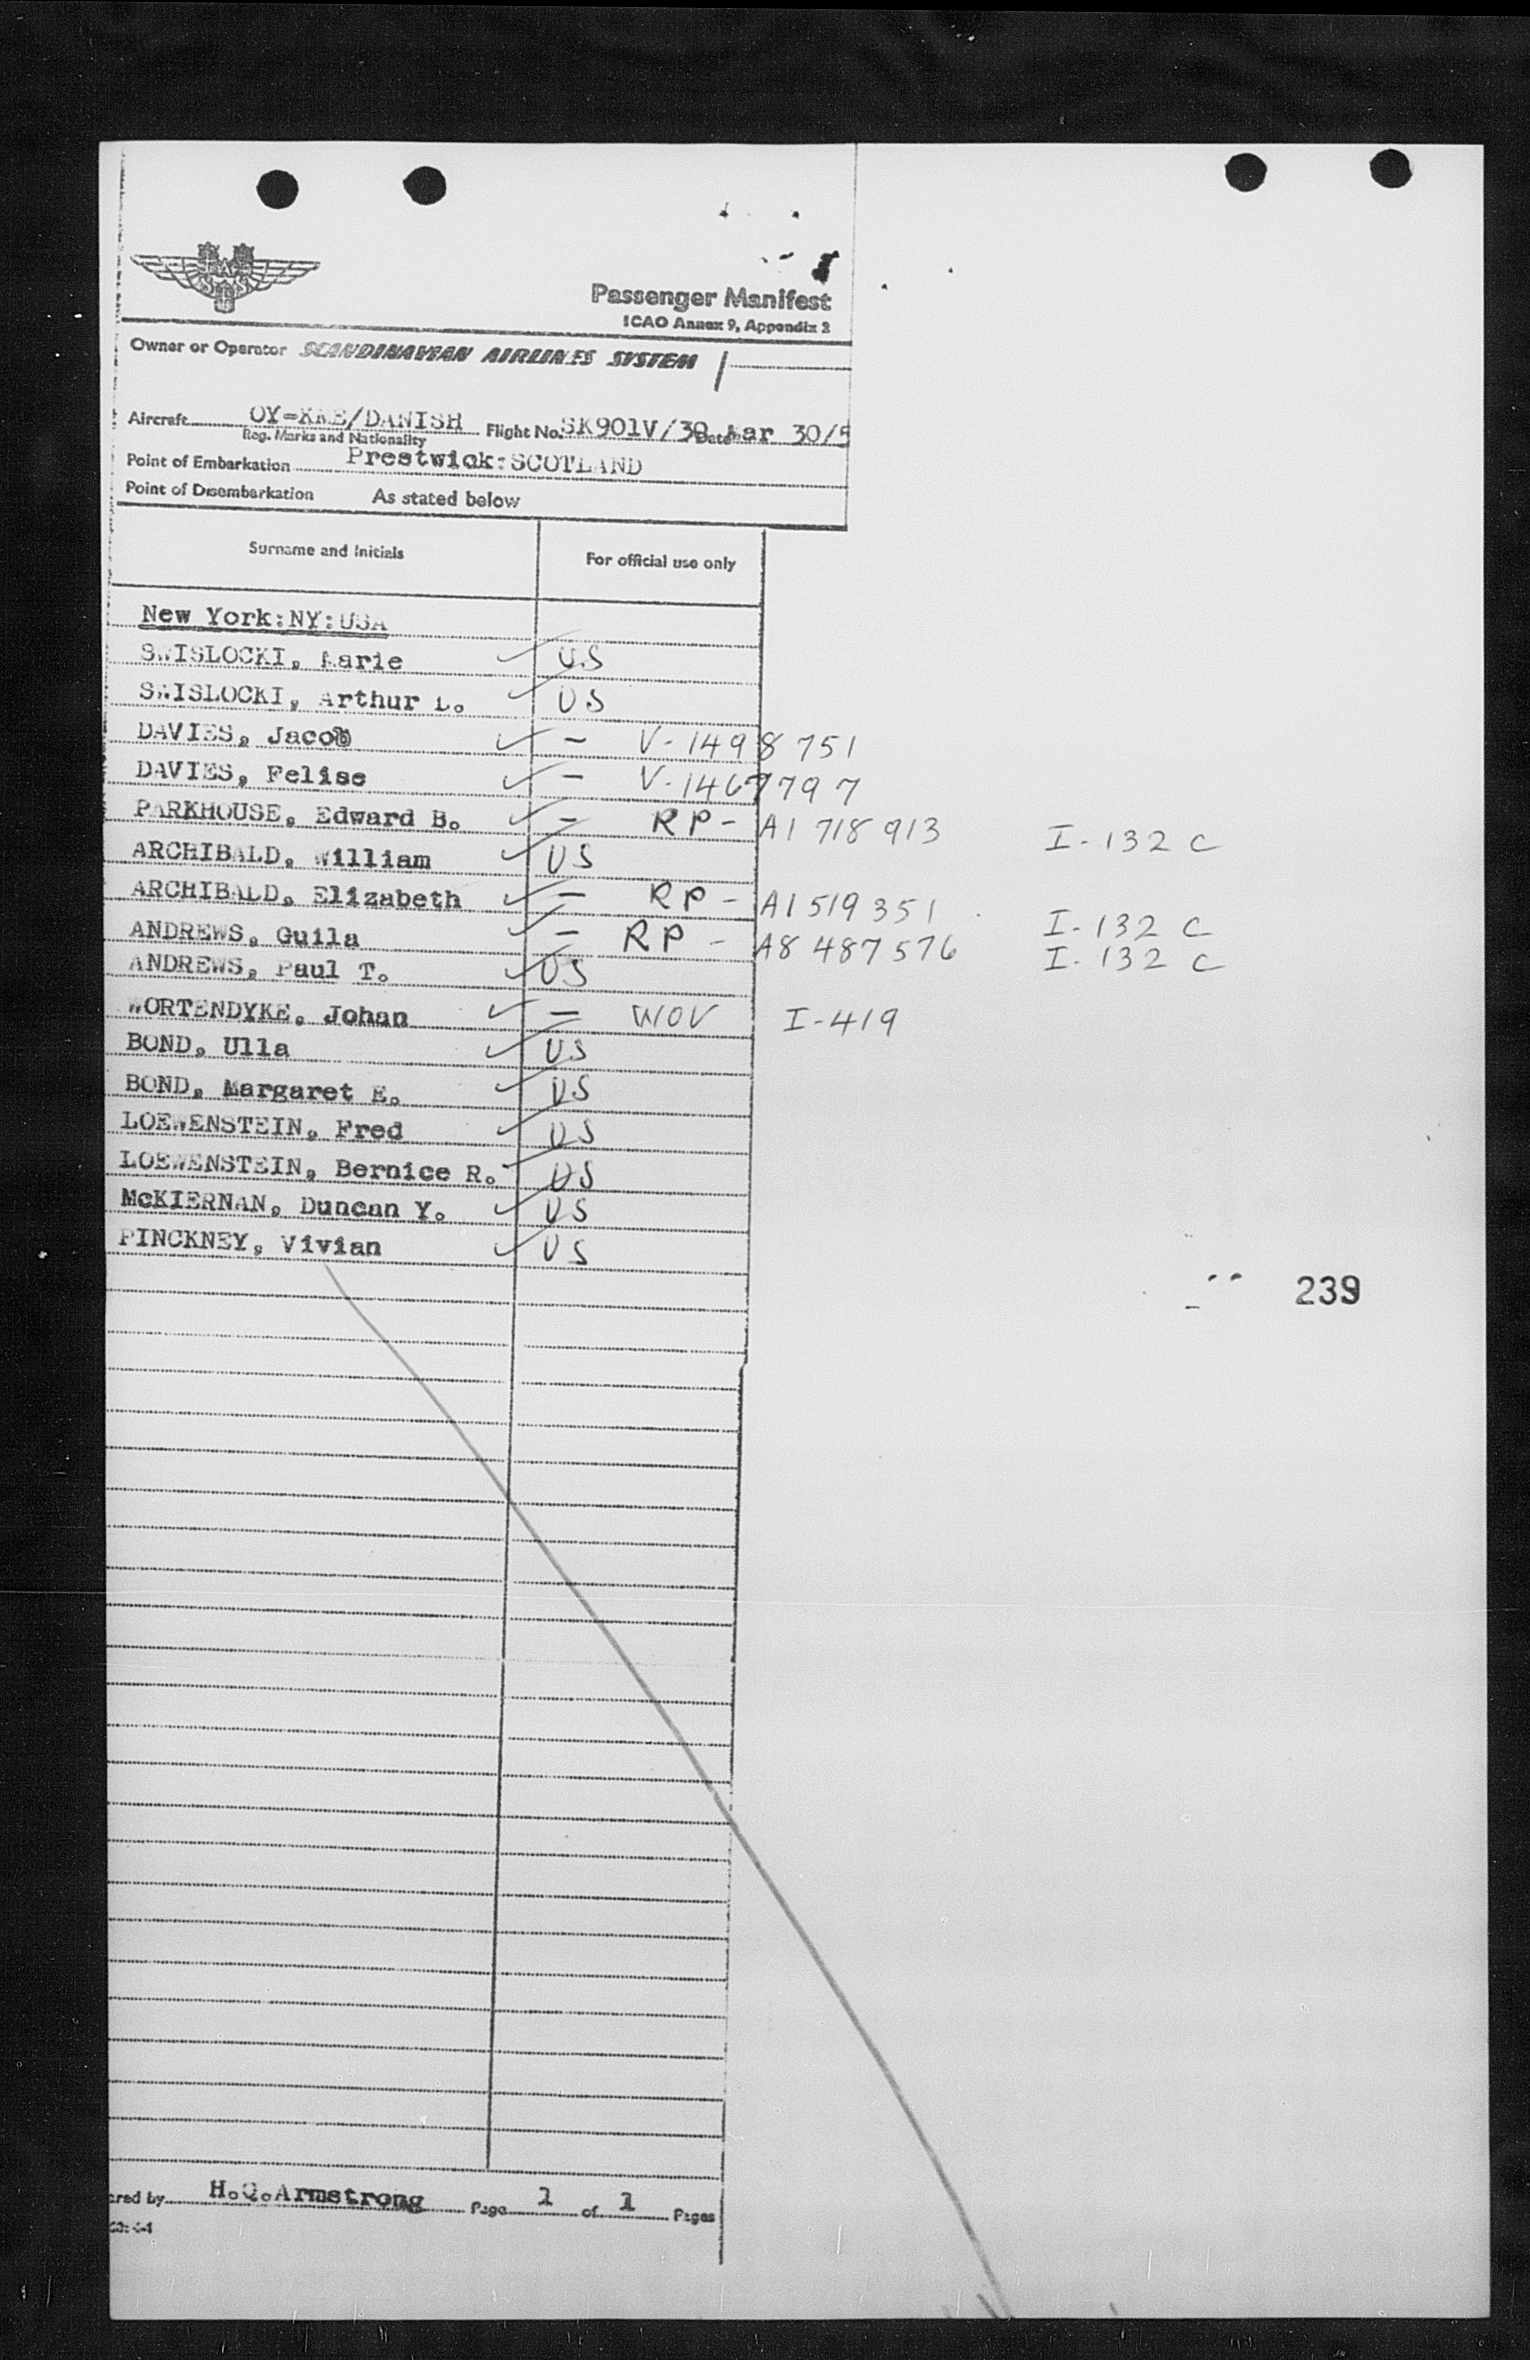 Passenger Manifest
ICAO Annex 9, Appendix 2
Owner or Operator SCANDINAVIAN AIRLINES SYSTEM
Aircraft OY-KKE/DANISH Flight No. SK901V/30 Date Mar 30/5
Reg. Marks and Nationality
Point of Embarkation Prestwick:SCOTLAND
Point of Disembarkation As stated below
Surname and Initials For official use only
New York:NY:USA
SWISLOCKI, Marie US
SWISLOCKI, Arthur L. US
DAVIES, Jacob - V-1498751
DAVIES, Felise - V-1467797
PARKHOUSE, Edward B. - RP- A1 718 913 I-132 C
ARCHIBALD, William US
ARCHIBALD, Elizabeth - RP- A1 519 351 I-132 C
ANDREWS, Guila - RP- A8 487 576 I-132 C
ANDREWS, Paul T. US
WORTENDYKE, Johan - WOV I-419
BOND, Ulla US
BOND, Margaret E. US
LOEWENSTEIN, Fred US
LOEWENSTEIN, Bernice R. US
McKIERNAN, Duncan Y. US
PINCKNEY, Vivian US
239
ared by H.Q.Armstrong Page 1 of 1 Pages